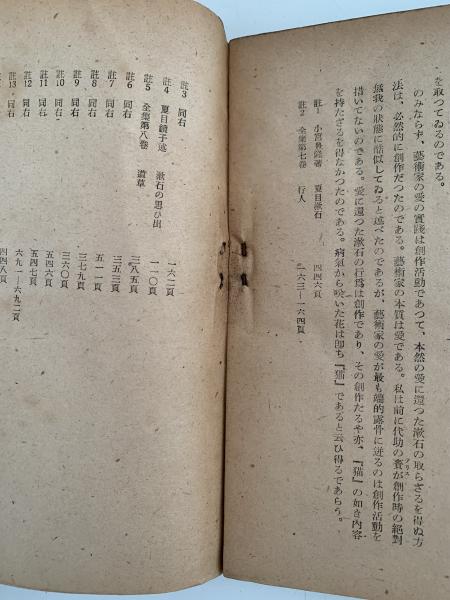 を取つてゐるのである。
のみならず、藝術家の愛の實踐は創作活動であつて、本然の愛に還つた漱石の取らざるを得ぬ方
法は、必然的に創作だつたのである。藝術家の本質は愛である。私は前に代助の賽が創作時の絕對
無我の狀態に酷似してゐると述べたのであるが、藝術家の愛が最も端的露骨に迸るのは創作活動を
措いてないのである。愛に還つた漱石の行爲は創作であり、その創作たるや亦、『猫』の如き內容
を持たざるを得なかつたのである。病氣から咲いた花は卽ち『猫』であると云ひ得るであらう。
註1 小宮豐隆著 夏目漱石 四四六頁
註2 全集第七卷 行人 一六三―一六四頁
註3 同右 一六二頁
註4 夏目鏡子述 漱石の思ひ出 一一〇頁
註5 全集第八卷 道草 三八五頁
註6 同右 三五三頁
註7 同右 五一一頁
註8 同右 三七九頁
註9 同右 三六〇頁
註10 同右 五四六頁
註11 同右 五四七頁
註12 同右 六九一―六九二頁
註13 同右 四四八頁